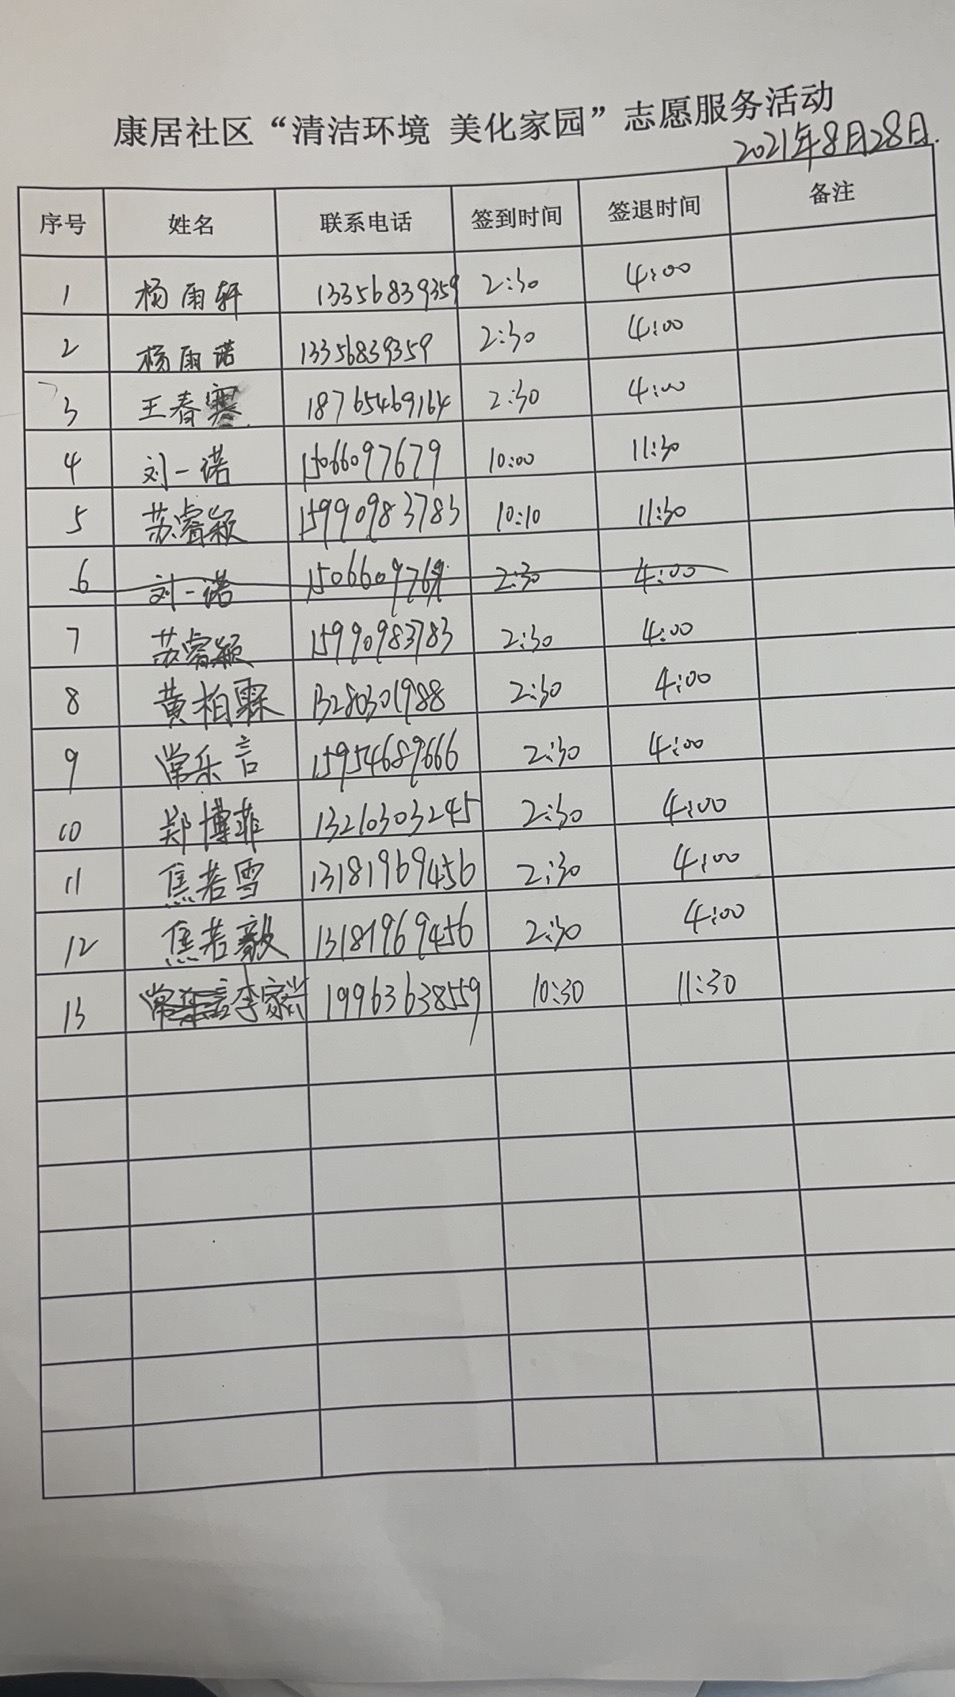 康居社区“清洁环境 美化家园”志愿服务活动
2021年8月28日.
序号 姓名 联系电话 签到时间 签退时间 备注
1 杨雨轩 13356839359 2:30 4:00
2 杨雨诺 13356839359 2:30 4:00
3 王春霁 18765469164 2:30 4:00
4 刘一诺 15066097679 10:00 11:30
5 苏睿颖 15990983783 10:10 11:30
6 刘一诺 2:30 4:00
7 苏睿颖 15990983783 2:30 4:00
8 黄柏霖 13280301988 2:30 4:00
9 常乐言 15954689666 2:30 4:00
10 郑博菲 13210303245 2:30 4:00
11 焦若雪 13181969456 2:30 4:00
12 焦若毅 13181969456 2:30 4:00
13 常乐言 李家兴 19963638559 10:30 11:30